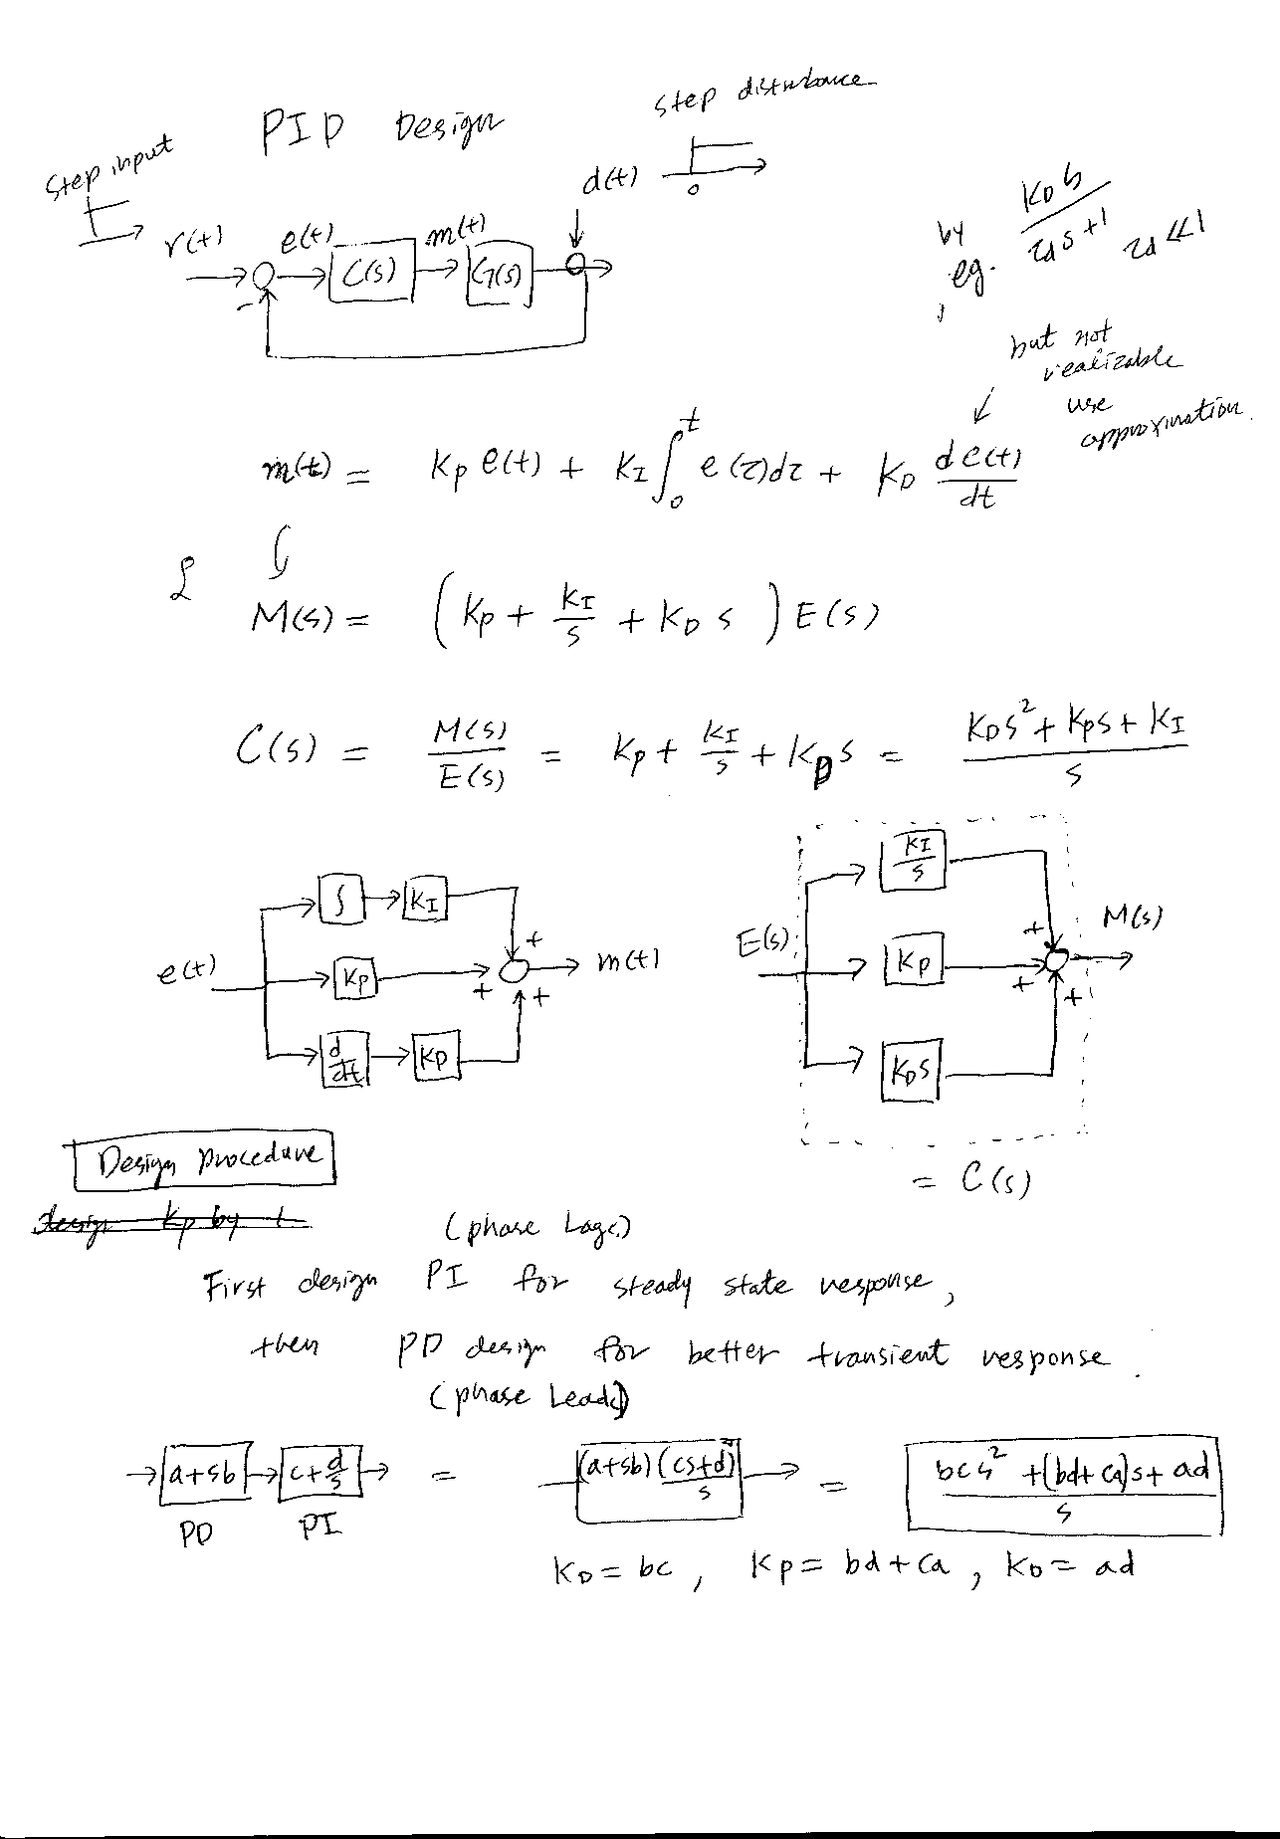 PID Design
step disturbance
step input
d(t)
0
r(t) e(t) C(s) m(t) G(s)
-
by
eg. K_D s / (τ_d s + 1) τ_d ≪ 1
,
but not
realizable
use
approximation.
m(t) = K_P e(t) + K_I ∫_0^t e(τ)dτ + K_D de(t)/dt
ℒ
M(s) = (K_P + K_I/s + K_D s) E(s)
C(s) = M(s)/E(s) = K_P + K_I/s + K_D s = (K_D s² + K_P s + K_I)/s
e(t) ∫ K_I + K_P + m(t) d/dt K_D +
E(s) K_I/s + K_P + M(s) K_D s +
= C(s)
Design procedure
design K_P by t
(phase Lag)
First design PI for steady state response,
then PD design for better transient response.
(phase Lead)
a+sb c+d/s = (a+sb)(cs+d)/s = (bcs² + (bd+ca)s + ad)/s
PD PI
K_D = bc, K_P = bd+ca, K_D = ad